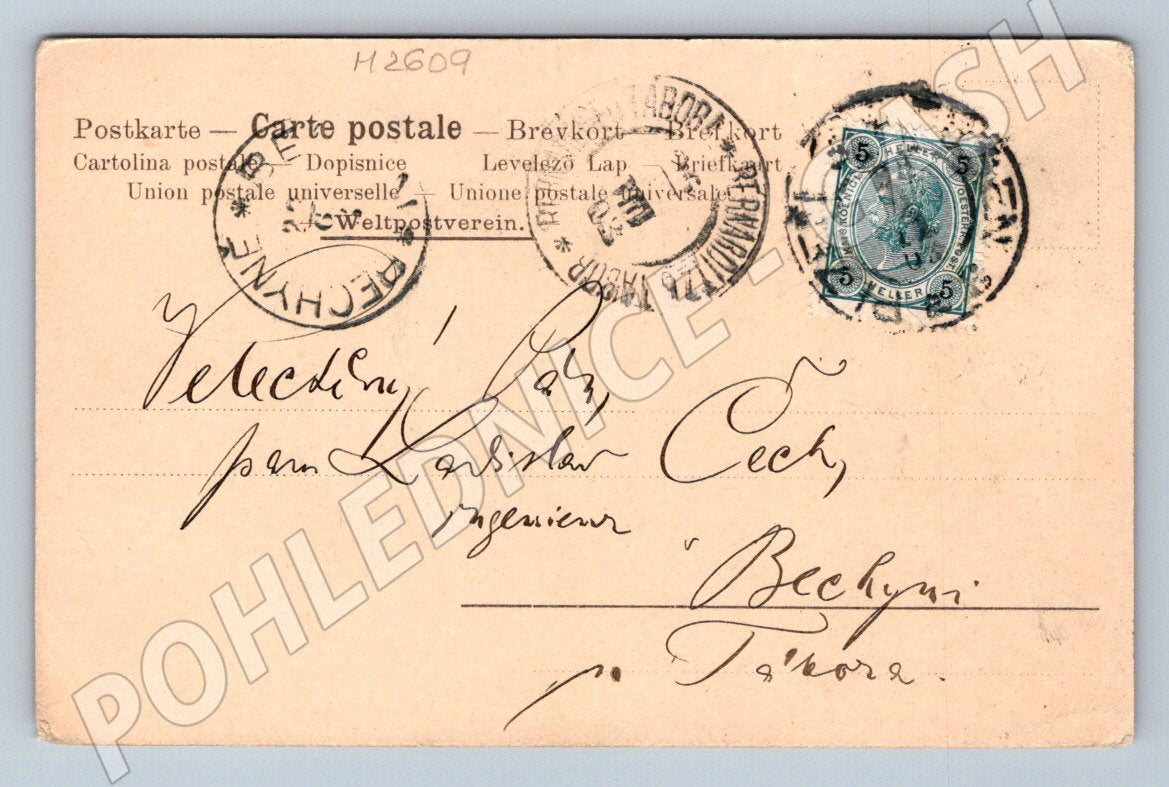 H2609
Postkarte — Carte postale — Brevkort — Brefkort
Cartolina postale — Dopisnice Levelező Lap — Briefkaart
Union postale universelle — Unione postale universale
Weltpostverein.
* BECHYNĚ * BECHYNĚ
TABORA * BERNARDITZ b. TABOR *
5 HELLER 5
5 HELLER 5
Velectěný Pán,
pan Ladislav Čech,
ingenieur
v Bechyni
p. Tábora.
POHLEDNICE - SH